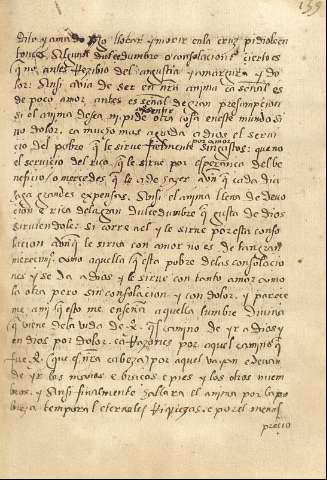 199
dito y amado hijo llorar y morir en la cruz pidiole en
tonces alguna dulcedumbre o consolacion cierto es
q̃ no, antes Recibio del angustia y amargura y do
lor. Ansi avia de ser en nr̃a anima ca señal es
de poco amor antes es señal de gran presumpcion
si el anima desea ni pide sentir otra cosa en este mundo si
no dolor. ca mucho mas agrada a dios el servi
cio del pobre q̃ le sirve por amor sin gastos: que no
el servicio del rico, q̃ le sirve por esperança del be
neficio / o mercedes, q̃ le a de hazer, aun q̃ cada dia
haga grandes expensas. Ansi el anima llena de devo
cion e rica de la gran dulcedumbre q̃ gusta de dios
sirviendole. si corre a el y le sirve por esta conso
lacion aun q̃ le sirva con amor no es de tan gran
merecimi.º como aquella q̃ esta pobre de las consolacio
nes y se da a dios y le sirve con tanto amor como
la otra pero sin consolacion. y con dolor. y parece
me a mi q̃ esto me enseña aquella lumbre divina
q̃ viene de la vida de X.º q̃ es camino de yr a dios y
en dios por dolor. ca Razon es por aquel camino q̃
fue X.º (que es nr̃a cabeza) por aquel vayan e devan
de yr las manos, e braços, e pies y los otros miem
bros. y Ansi finalmente hallara el anima por la po
breza temporal eternales Riquezas. e por el menos
precio